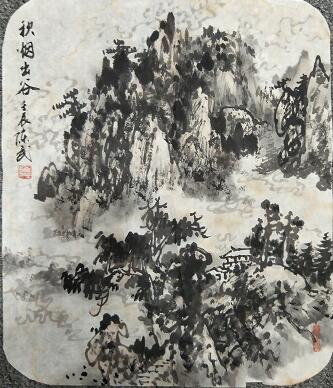 秋烟出谷壬辰陈武